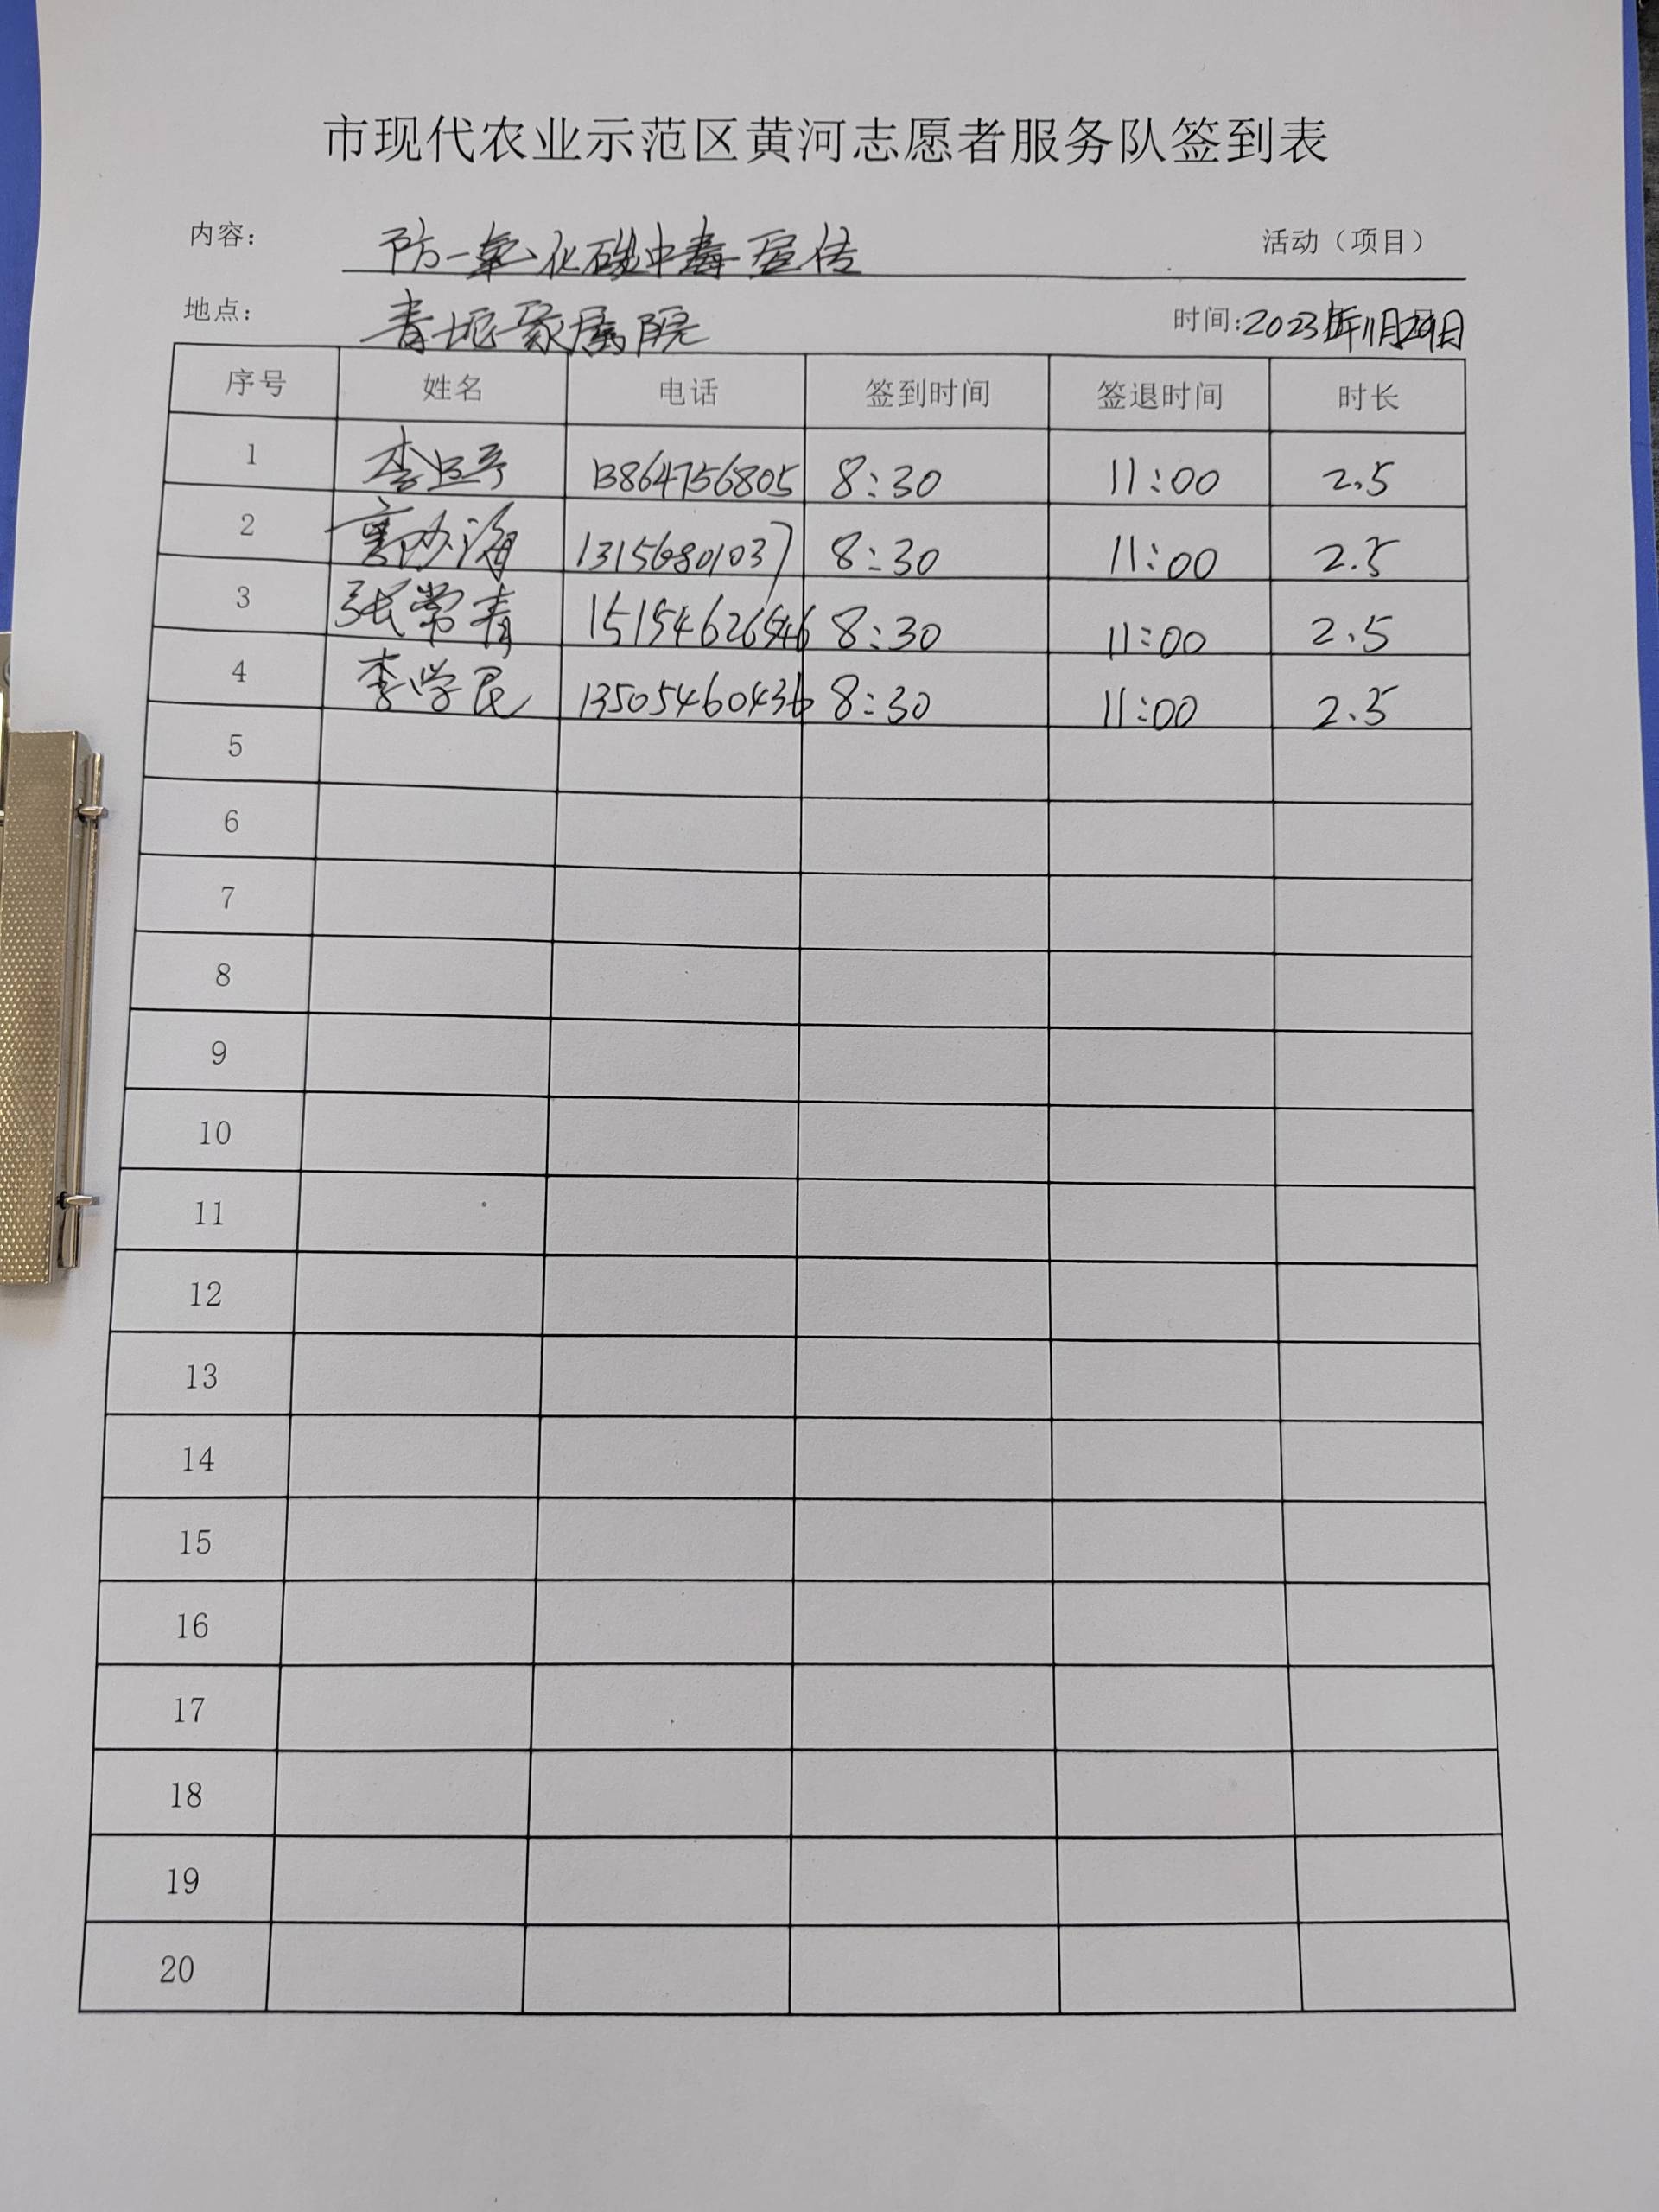 市现代农业示范区黄河志愿者服务队签到表
内容： 防一氧化碳中毒宣传 活动（项目）
地点： 青坨家属院 时间:2023年11月29日
序号 姓名 电话 签到时间 签退时间 时长
1 李 13864756805 8:30 11:00 2.5
2 海 13156801037 8:30 11:00 2.5
3 张常青 15154626546 8:30 11:00 2.5
4 李学民 13505460436 8:30 11:00 2.5
5
6
7
8
9
10
11
12
13
14
15
16
17
18
19
20